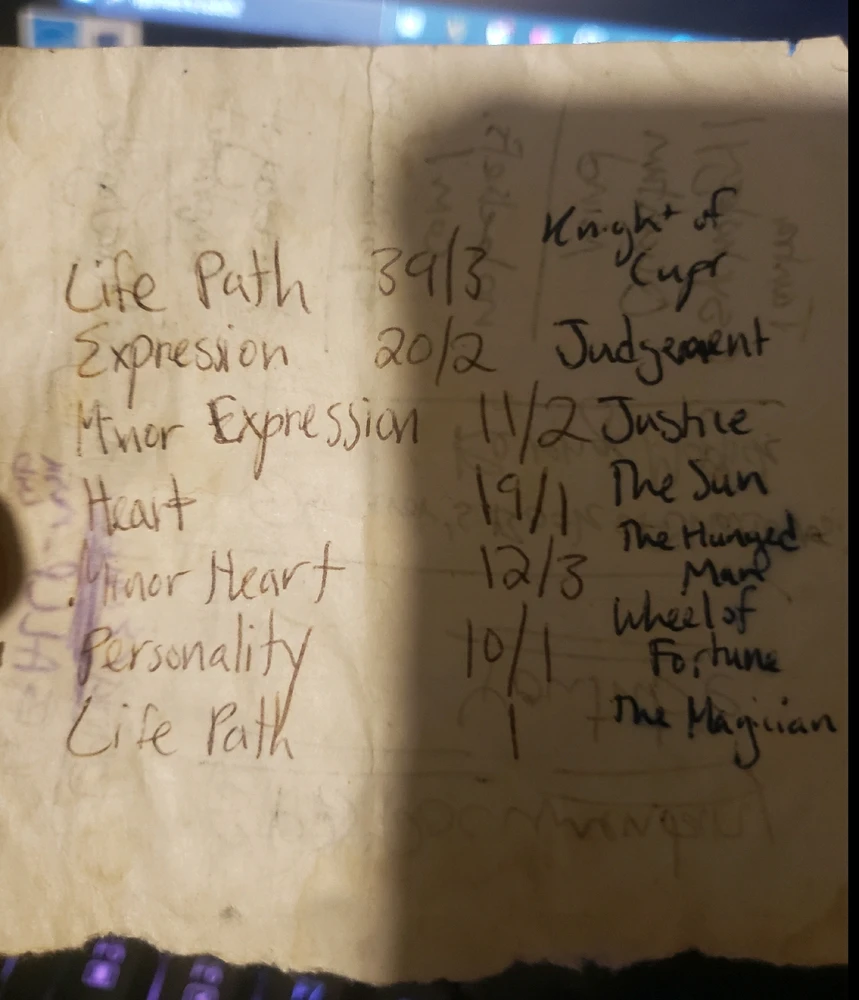 Life Path 39/3 Knight of
Cups
Expression 20/2 Judgement
Minor Expression 11/2 Justice
Heart 19/1 The Sun
Minor Heart 12/3 The Hunged
Man
Personality 10/1 Wheel of
Fortune
Life Path 1 The Magician